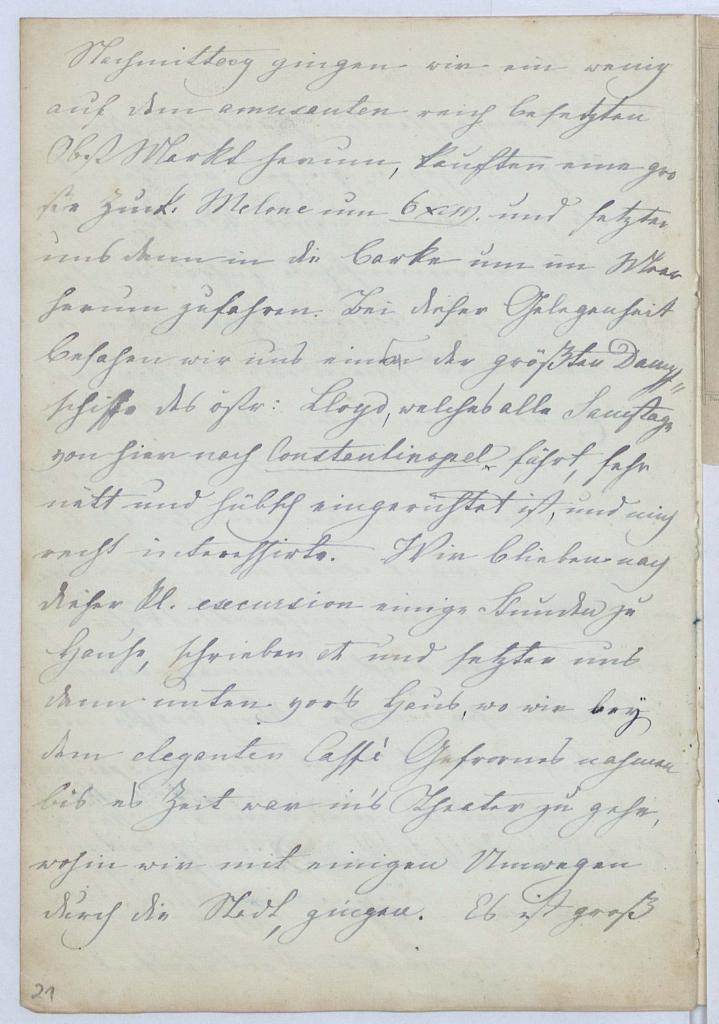 Nachmittag gingen wir ein wenig
auf dem amusanten reich besetzten
Obst Markt herum, kauften eine gro
ße Zuck. Melone um 6 x CM. und setzten
uns dann in die Barke um im Meer
herum zufahren. Bei dieser Gelegenheit
besahen wir uns eines der größten Dampf„
schiffe des östr: Lloyd, welches alle Samstage
von hier nach Constantinopel fährt, sehr
nett und hübsch eingerichtet ist, und mich
recht interessirte. Wir blieben nach
dieser kl. excursion einige Stunden zu
Hause, schrieben et und setzten uns
dann unten vor's Haus, wo wir bey
dem eleganten Caffé Gefrornes nahmen
bis es Zeit war in's Theater zu gehn,
wohin wir mit einigen Umwegen
durch die Stadt, gingen. Es ist groß
21